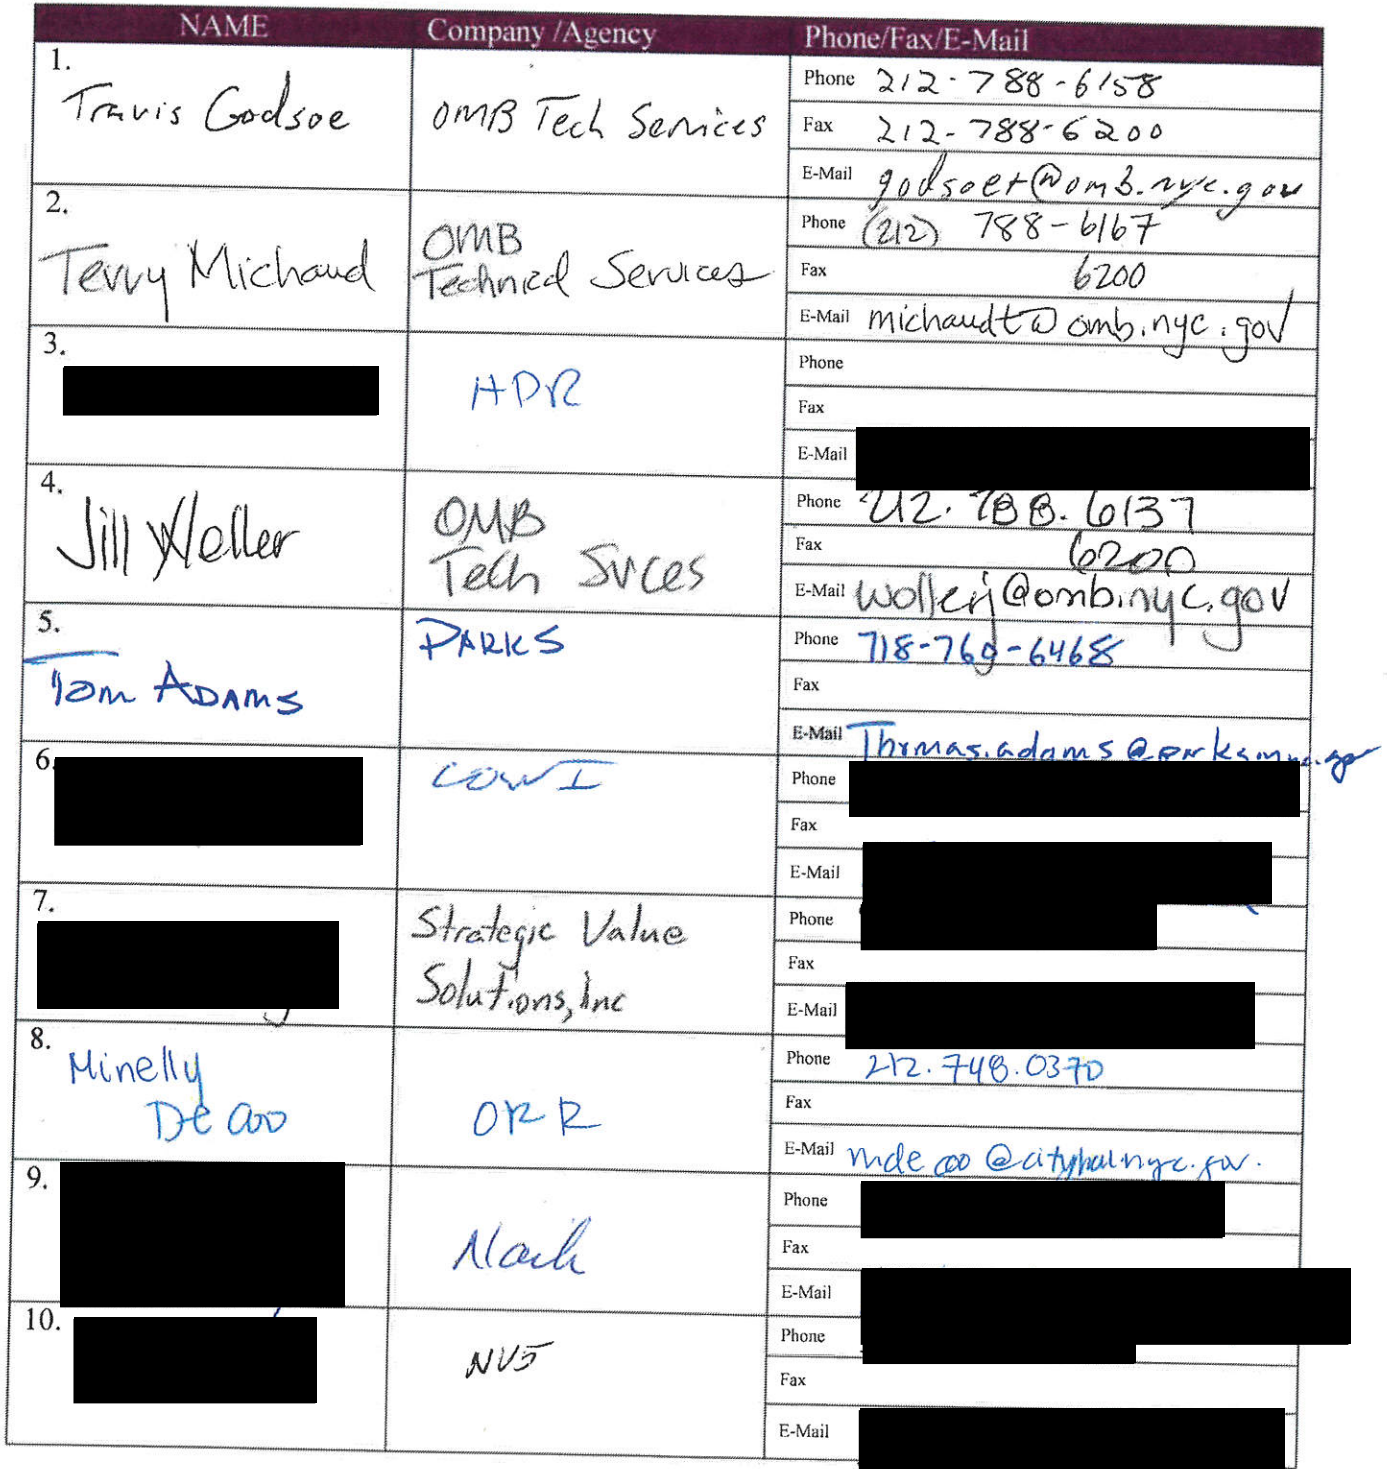 NAME Company /Agency Phone/Fax/E-Mail
1.
Travis Godsoe OMB Tech Services
Phone 212-788-6158
Fax 212-788-6200
E-Mail godsoet@omb.nyc.gov
2.
Terry Michaud
OMB
Technical Services
Phone (212) 788-6167
Fax 6200
E-Mail michaudt@omb.nyc.gov
3.
HDR
Phone
Fax
E-Mail
4.
Jill Weller
OMB
Tech Svces
Phone 212.788.6137
Fax 6200
E-Mail wollerj@omb.nyc.gov
5.
Tom ADAMS
PARKS
Phone 718-760-6468
Fax
E-Mail Thomas.adams@parks
6.
COWI
Phone
Fax
E-Mail
7.
Strategic Value
Solutions, Inc
Phone
Fax
E-Mail
8.
Minelly
De Coo
ORR
Phone 212.748.0370
Fax
E-Mail mdecoo@cityhall.nyc.gov.
9.
Phone
Fax
E-Mail
10.
NV5
Phone
Fax
E-Mail